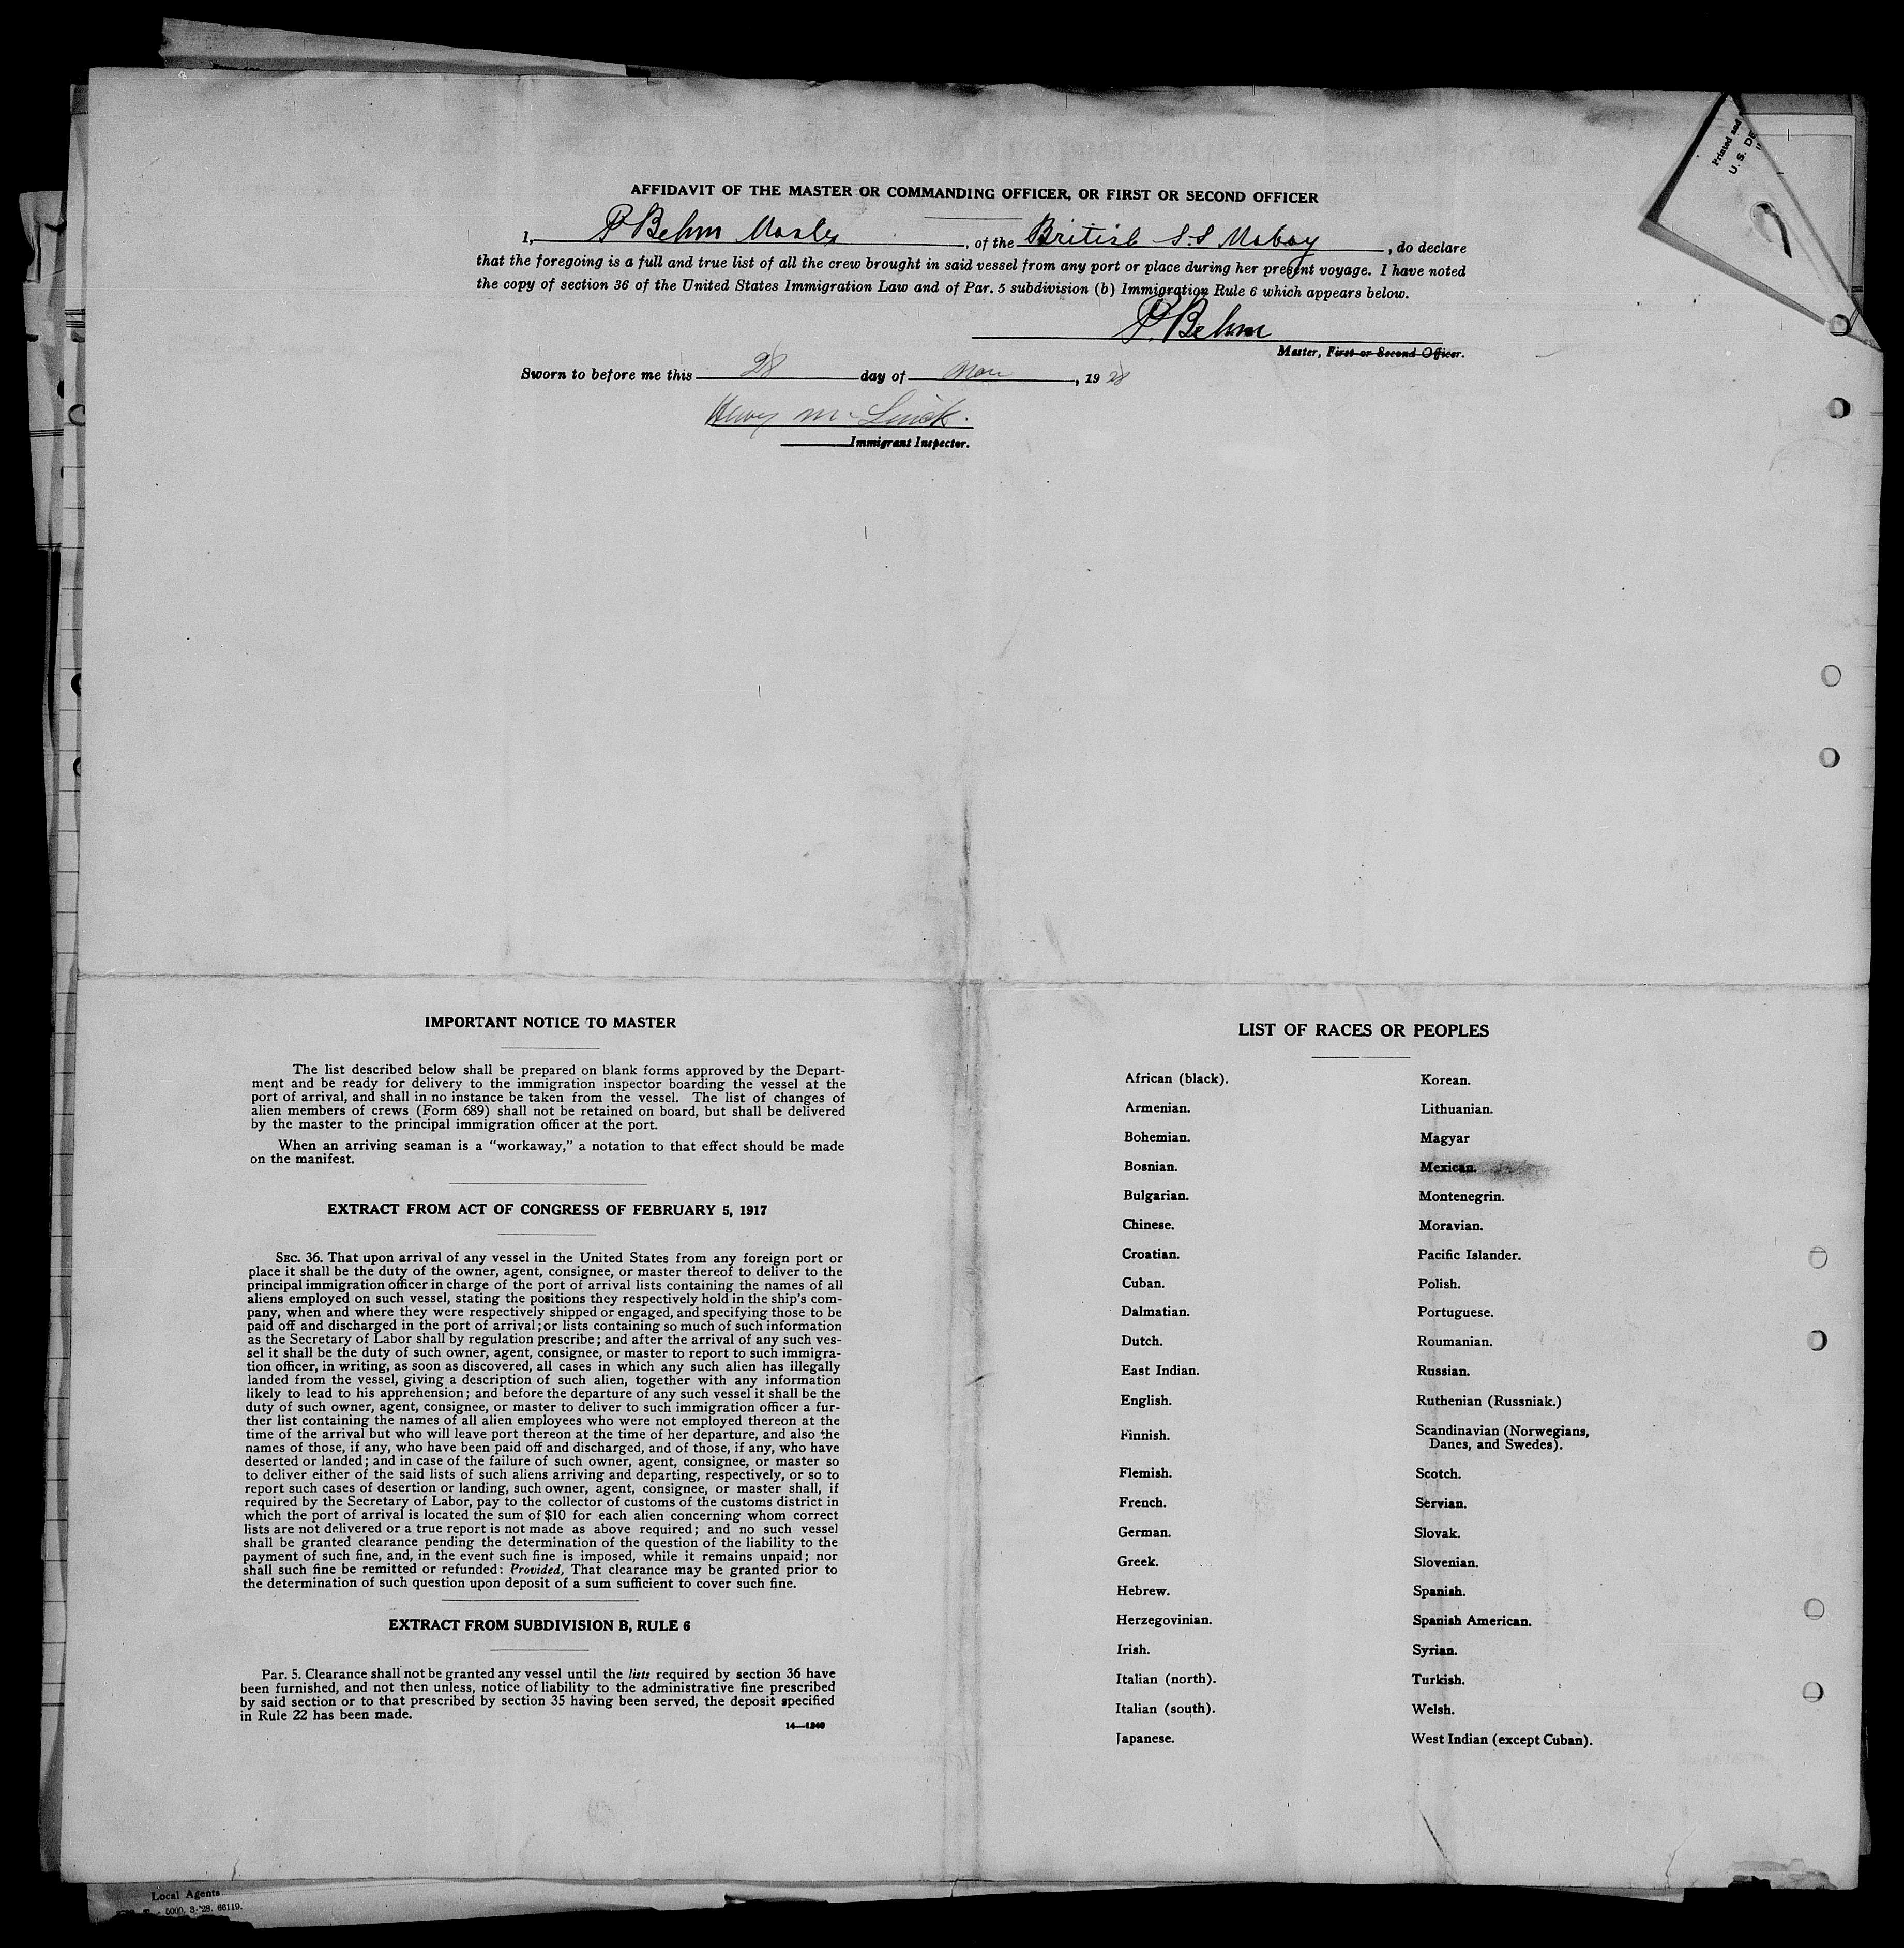 Printed and
U. S. DE
AFFIDAVIT OF THE MASTER OR COMMANDING OFFICER, OR FIRST OR SECOND OFFICER
I, P Behm Master, of the British S.S Mabay, do declare
that the foregoing is a full and true list of all the crew brought in said vessel from any port or place during her present voyage. I have noted
the copy of section 36 of the United States Immigration Law and of Par. 5 subdivision (b) Immigration Rule 6 which appears below.
P. Behm
Master, First or Second Officer.
Sworn to before me this 28 day of Nov, 1928
Immigrant Inspector.
IMPORTANT NOTICE TO MASTER
The list described below shall be prepared on blank forms approved by the Depart-
ment and be ready for delivery to the immigration inspector boarding the vessel at the
port of arrival, and shall in no instance be taken from the vessel. The list of changes of
alien members of crews (Form 689) shall not be retained on board, but shall be delivered
by the master to the principal immigration officer at the port.
When an arriving seaman is a "workaway," a notation to that effect should be made
on the manifest.
EXTRACT FROM ACT OF CONGRESS OF FEBRUARY 5, 1917
SEC. 36. That upon arrival of any vessel in the United States from any foreign port or
place it shall be the duty of the owner, agent, consignee, or master thereof to deliver to the
principal immigration officer in charge of the port of arrival lists containing the names of all
aliens employed on such vessel, stating the positions they respectively hold in the ship's com-
pany, when and where they were respectively shipped or engaged, and specifying those to be
paid off and discharged in the port of arrival; or lists containing so much of such information
as the Secretary of Labor shall by regulation prescribe; and after the arrival of any such ves-
sel it shall be the duty of such owner, agent, consignee, or master to report to such immigra-
tion officer, in writing, as soon as discovered, all cases in which any such alien has illegally
landed from the vessel, giving a description of such alien, together with any information
likely to lead to his apprehension; and before the departure of any such vessel it shall be the
duty of such owner, agent, consignee, or master to deliver to such immigration officer a fur-
ther list containing the names of all alien employees who were not employed thereon at the
time of the arrival but who will leave port thereon at the time of her departure, and also the
names of those, if any, who have been paid off and discharged, and of those, if any, who have
deserted or landed; and in case of the failure of such owner, agent, consignee, or master so
to deliver either of the said lists of such aliens arriving and departing, respectively, or so to
report such cases of desertion or landing, such owner, agent, consignee, or master shall, if
required by the Secretary of Labor, pay to the collector of customs of the customs district in
which the port of arrival is located the sum of $10 for each alien concerning whom correct
lists are not delivered or a true report is not made as above required; and no such vessel
shall be granted clearance pending the determination of the question of the liability to the
payment of such fine, and, in the event such fine is imposed, while it remains unpaid; nor
shall such fine be remitted or refunded: Provided, That clearance may be granted prior to
the determination of such question upon deposit of a sum sufficient to cover such fine.
EXTRACT FROM SUBDIVISION B, RULE 6
Par. 5. Clearance shall not be granted any vessel until the lists required by section 36 have
been furnished, and not then unless, notice of liability to the administrative fine prescribed
by said section or to that prescribed by section 35 having been served, the deposit specified
in Rule 22 has been made.
14—1240
LIST OF RACES OR PEOPLES
African (black).
Armenian.
Bohemian.
Bosnian.
Bulgarian.
Chinese.
Croatian.
Cuban.
Dalmatian.
Dutch.
East Indian.
English.
Finnish.
Flemish.
French.
German.
Greek.
Hebrew.
Herzegovinian.
Irish.
Italian (north).
Italian (south).
Japanese.
Korean.
Lithuanian.
Magyar
Mexican.
Montenegrin.
Moravian.
Pacific Islander.
Polish.
Portuguese.
Roumanian.
Russian.
Ruthenian (Russniak.)
Scandinavian (Norwegians,
Danes, and Swedes).
Scotch.
Servian.
Slovak.
Slovenian.
Spanish.
Spanish American.
Syrian.
Turkish.
Welsh.
West Indian (except Cuban).
Local Agents
5000. 3-'28. 66119.